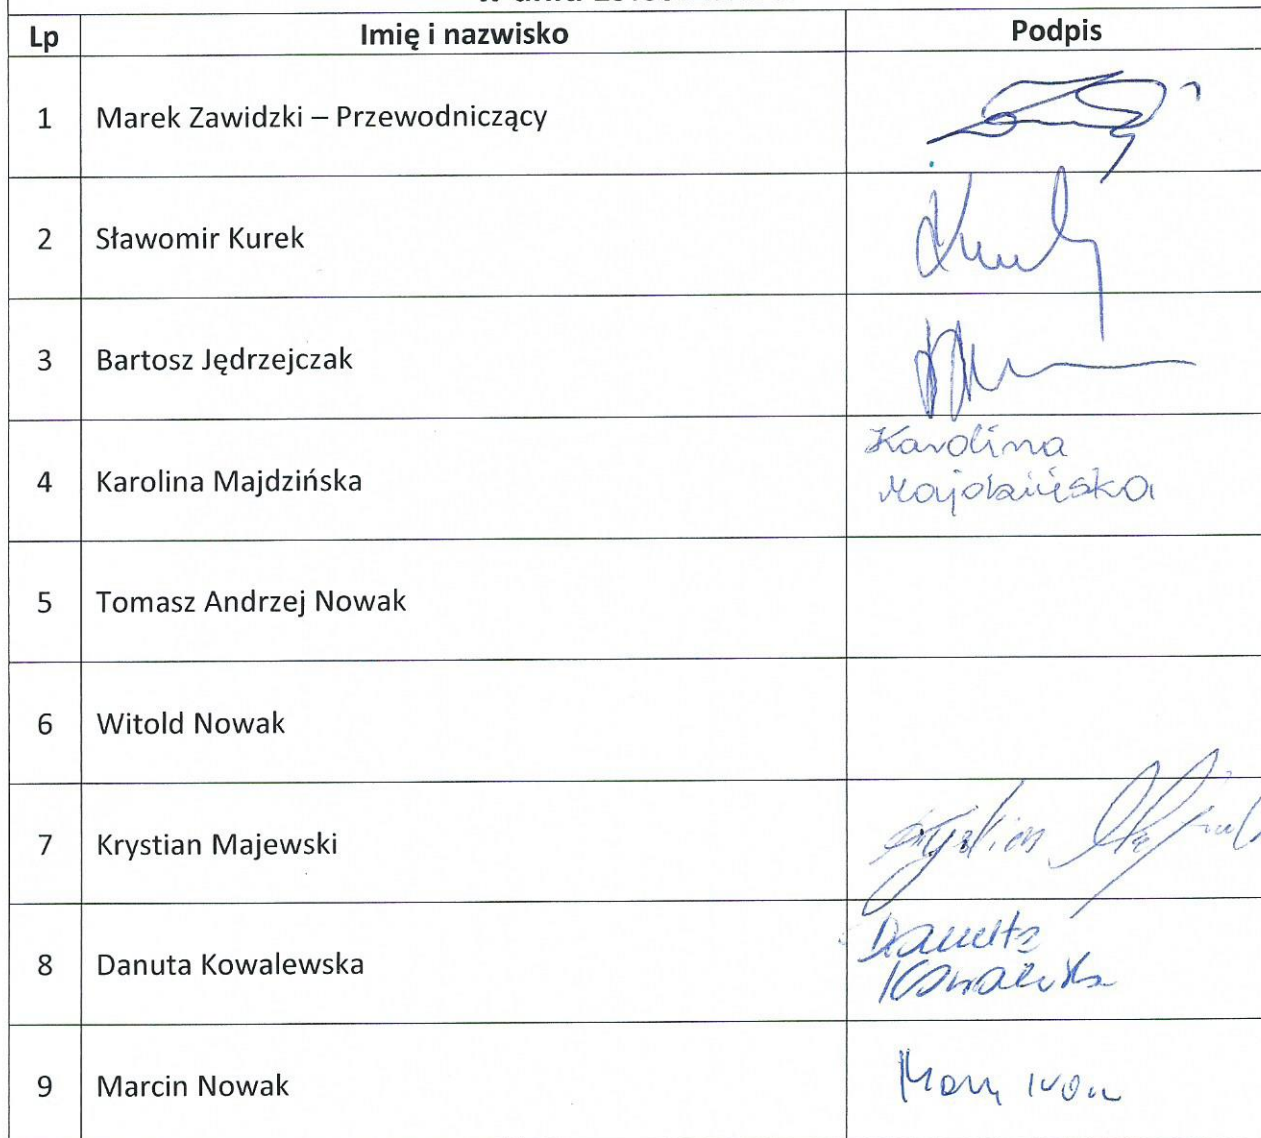 Lp Imię i nazwisko Podpis
1 Marek Zawidzki – Przewodniczący
2 Sławomir Kurek
3 Bartosz Jędrzejczak
4 Karolina Majdzińska Karolina
Majdzińska
5 Tomasz Andrzej Nowak
6 Witold Nowak
7 Krystian Majewski
8 Danuta Kowalewska Danuta
9 Marcin Nowak